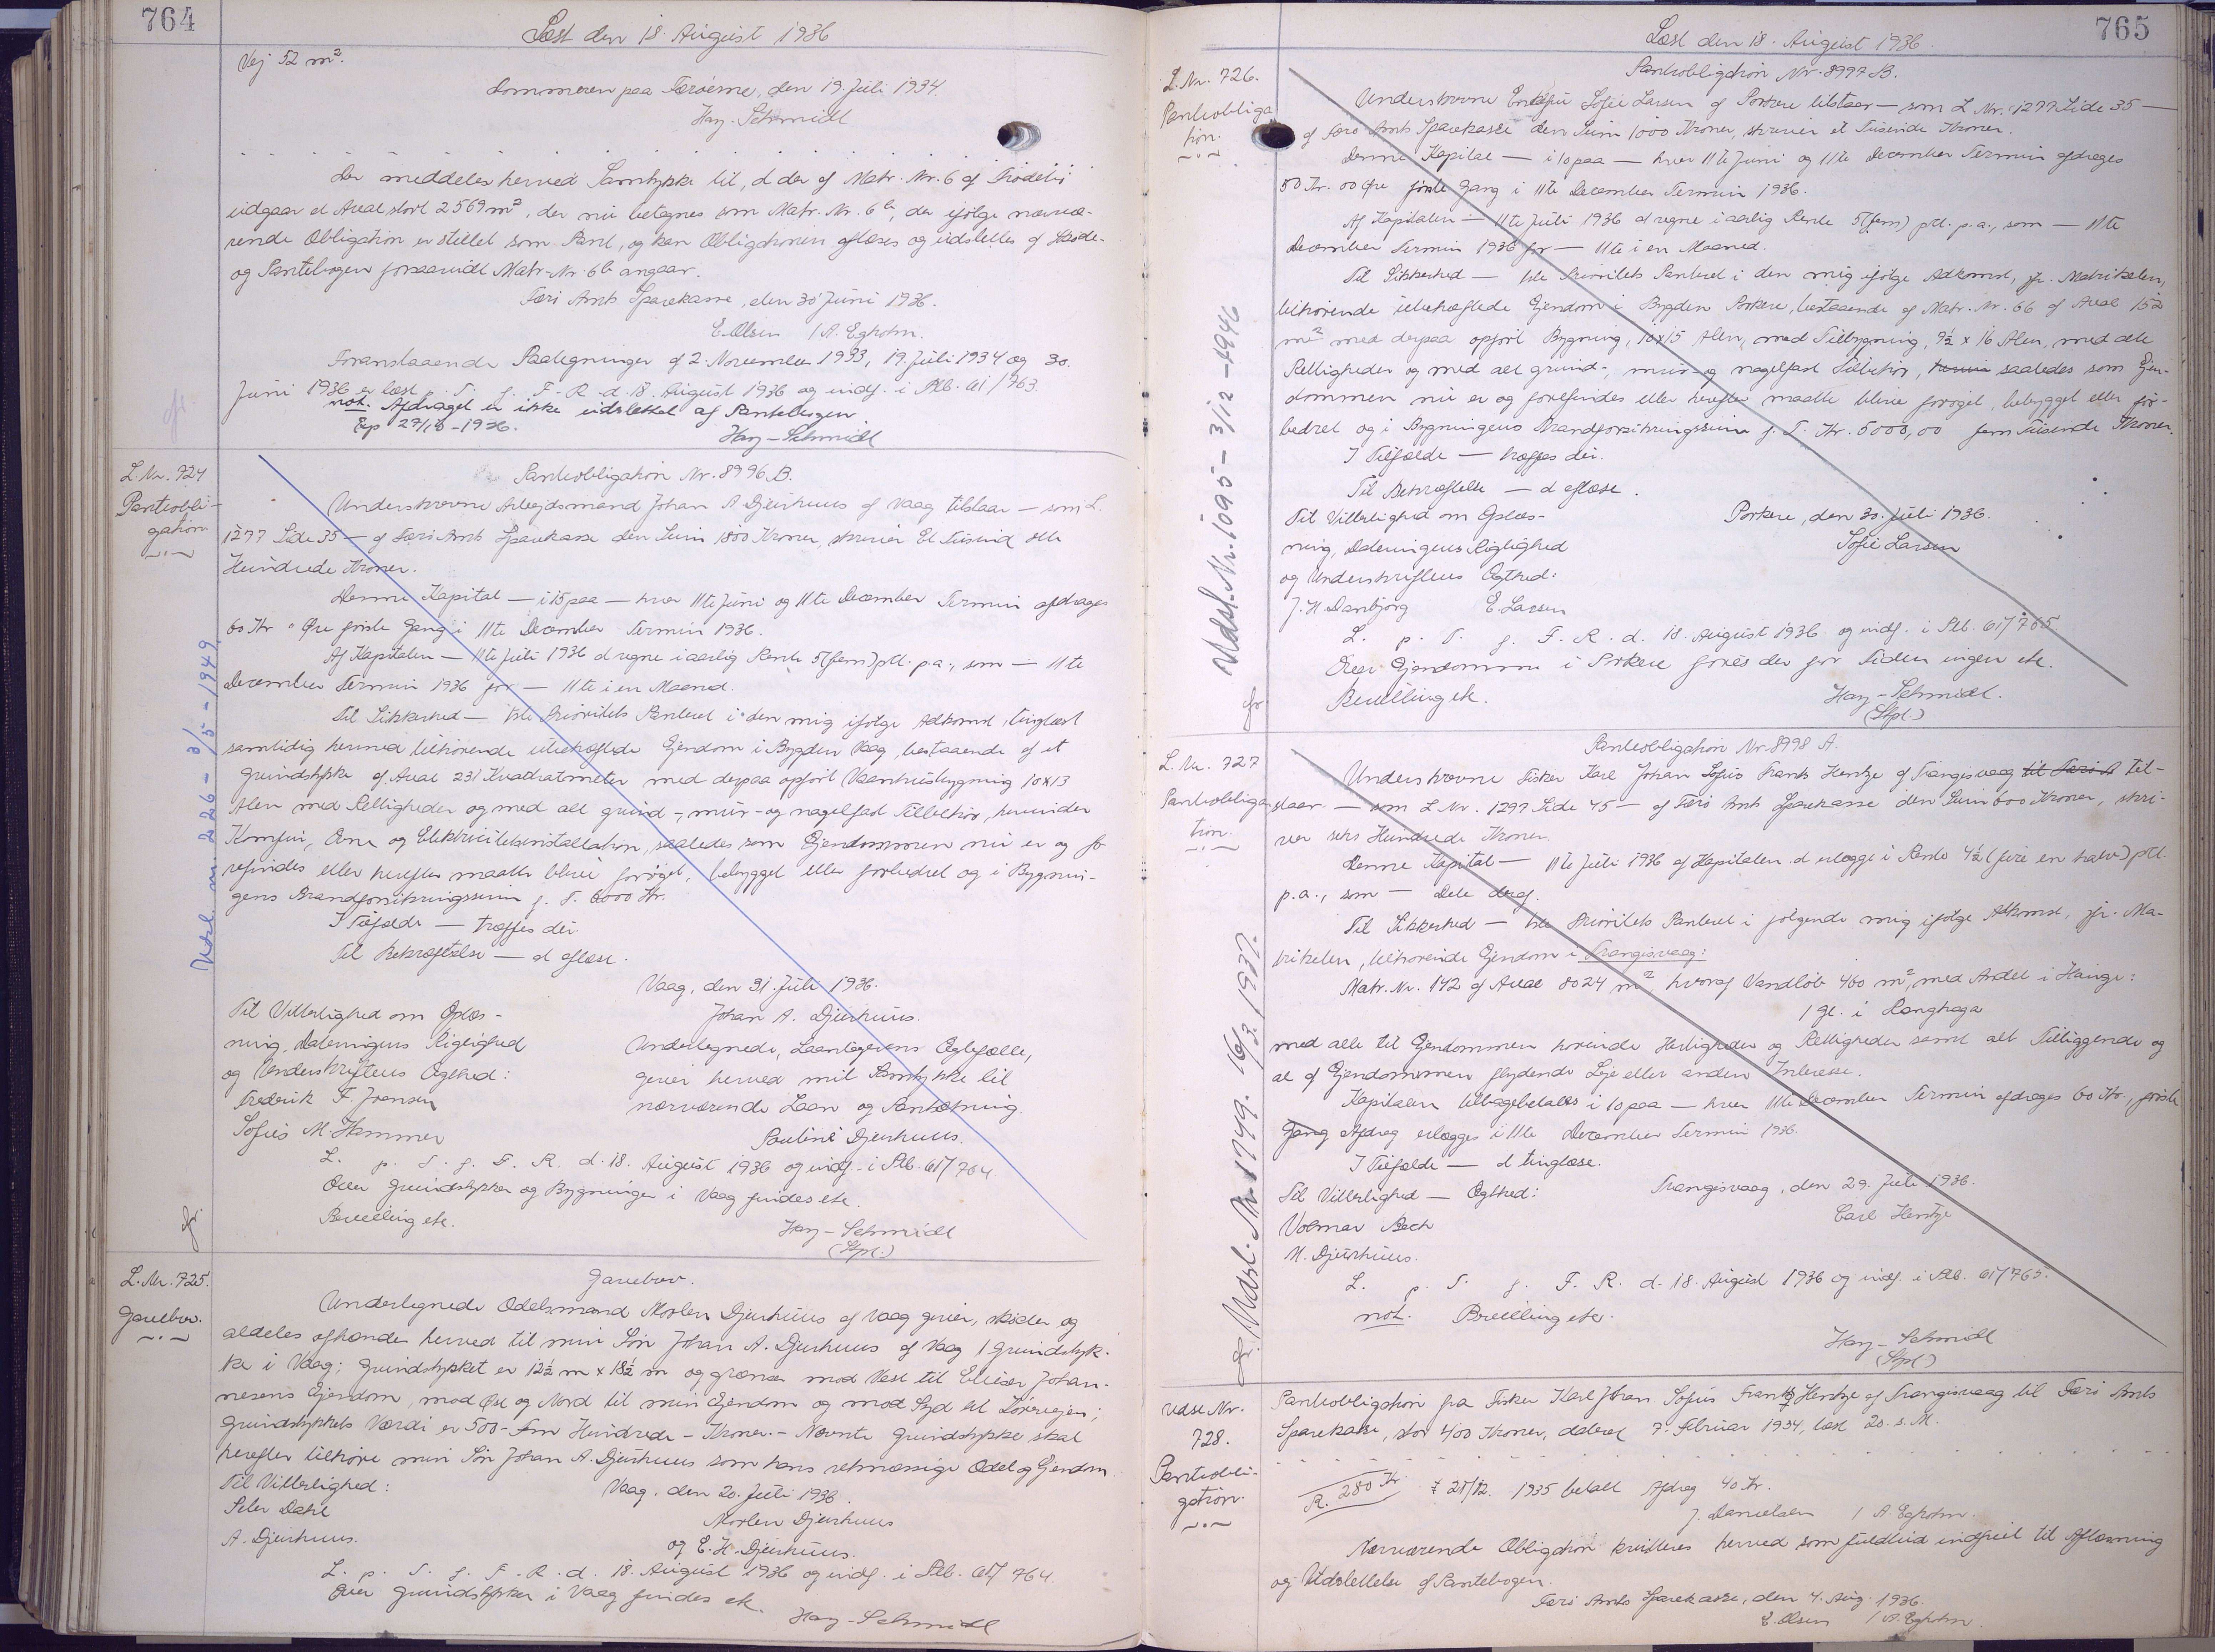 764
Læst den 18. August 1936
Vej 52 m².
Dommeren paa Færøerne, den 19. Juli 1934.
Hay-Schmidt
Der meddeles herved Samtykke til, at der af Matr. Nr. 6 af Frodebø
udgaar et Areal stort 2569 m², der nu betegnes som Matr. Nr. 6 b, der ifølge nærvæ-
rende Obligation er stillet som Pant, og kan Obligationen aflæses og udslettes af Skøde-
og Pantebogen forsaavidt Matr.-Nr. 6 b angaar.
Færø Amts Sparekasse, den 30 Juni 1936.
E. Olsen / A. Egholm.
Foranstaaende Paategninger af 2. November 1933, 19. Juli 1934 og 30.
Juni 1936 er læst p. T. f. F. R. d. 18. August 1936 og indf. i Pb. 61/763.
not. Afdraget er ikke udslettet af Pantebogen
Exp 27/10-1936.
Hay-Schmidt
L. Nr. 724
Pantobli-
gation
Pantobligation Nr. 8996 B.
Underskrevne Arbejdsmand Johan A Djurhuus af Vaag tilstaar — som L.
1277 Side 35 — af Færø Amts Sparekasse den Sum 1800 Kroner, skriver Et Tusind otte
Hundrede Kroner.
Denne Kapital — i 15 paa — hver 11te Juni og 11te December Termin afdrages
60 Kr " Øre første Gang i 11te December Termin 1936.
Af Kapitalen — 11te Juli 1936 at regne i aarlig Rente 5 (fem) pCt. p.a., som — 11te
December Termin 1936 for — 11te i en Maaned.
Til Sikkerhed — 1ste Prioritets Panteret i den mig ifølge Adkomst, tinglæst
samtidig hermed tilhørende ubehæftede Ejendom i Bygden Vaag, bestaaende af et
Grundstykke af Areal 231 Kvadratmeter med derpaa opført Vaaningsbygning 10x13
Alen med Rettigheder og med alt grund-, mur- og nagelfast Tilbehør, herunder
Komfur, Ovne og Elektricitetsinstallation, saaledes som Ejendommen nu er og fo-
refindes eller herefter maatte blive forøget, bebygget eller forbedret og i Bygnin-
gens Brandforsikringssum p. T. 6000 Kr.
I Tilfælde — træffes dér.
Til Bekræftelse — at aflæse.
Vaag, den 31. Juli 1936.
Til Vitterlighed om Oplæs-
Johan A. Djurhuus.
ning, Dateringens Rigtighed
Undertegnede, Laantagerens Ægtefælle,
og Underskriftens Ægthed:
giver herved mit Samtykke til
Frederik F. Joensen
nærværende Laan og Pantsætning.
Sofus M. Hammer
Pauline Djurhuus.
L. p. T. f. F. R. d. 18. August 1936 og indf. i Pb. 61/764
Over Grundstykker og Bygninger i Vaag findes etc.
Bevilling etc.
Hay-Schmidt
(Stpl.)
Udsl. nr. 226 - 3/5 - 1949
L. Nr. 725.
Gavebrev.
Gavebrev.
Undertegnede Odelsmand Morten Djurhuus af Vaag giver, skøder og
aldeles afhænder herved til min Søn Johan A. Djurhuus af Vaag 1 Grundstyk-
ke i Vaag; Grundstykket er 12½ m x 18½ m og grænser mod Vest til Elieser Johan-
nesens Ejendom, mod Øst og Nord til min Ejendom og mod Syd til Løvvejen;
Grundstykkets Værdi er 500 - Fem Hundrede - Kroner. - Nævnte Grundstykke skal
herefter tilhøre min Søn Johan A. Djurhuus som hans retmæssige Odel og Ejendom.
Til Vitterlighed:
Vaag, den 20. Juli 1936.
Peter Dahl
Morten Djurhuus
A. Djurhuus.
og E. H. Djurhuus.
L. p. T. f. F. R. d. 18. August 1936 og indf. i Pb. 61/764.
Over Grundstykker i Vaag findes etc.
Hay-Schmidt
765
Læst den 18. August 1936.
L. Nr. 726.
Pantobliga
tion.
Pantobligation Nr. 8997 B.
Underskrevne Enkefru Sofie Larsen af Porkere tilstaar — som L. Nr. 1277 Side 35 —
af Færø Amts Sparekasse den Sum 1000 Kroner, skriver et Tusinde Kroner.
Denne Kapital — i 10 paa — hver 11te Juni og 11te December Termin afdrages
50 Kr. 00 Øre første Gang i 11te December Termin 1936.
Af Kapitalen — 11te Juli 1936 at regne i aarlig Rente 5 (fem) pCt. p.a., som — 11te
December Termin 1936 for — 11te i en Maaned.
Til Sikkerhed — 1ste Prioritets Panteret i den mig ifølge Adkomst, jfr. Matrikelen,
tilhørende ubehæftede Ejendom i Bygden Porkere, bestaaende af Matr. Nr. 66 af Areal 152
m² med derpaa opført Bygning, 10x15 Alen, med Tilbygning, 9½ x 16 Alen, med alle
Rettigheder og med alt grund-, mur- og nagelfast Tilbehør, saaledes som Ejen-
dommen nu er og forefindes eller herefter maatte blive forøget, bebygget eller for-
bedret og i Bygningens Brandforsikringssum p. T. Kr. 5000,00 fem Tusinde Kroner.
I Tilfælde — træffes dér.
Til Bekræftelse — at aflæse.
Til Vitterlighed om Oplæs-
Porkere, den 30. Juli 1936.
ning, Dateringens Rigtighed
Sofie Larsen
og Underskriftens Ægthed:
J. H Danbjørg E. Larsen
L. p. T. f. F. R. d. 18. August 1936 og indf. i Pb. 61/765
Over Ejendommen i Porkere føres der for Tiden ingen etc.
Bevilling etc.
Hay-Schmidt.
(Stpl.)
Udsl. Nr. 1095 - 3/12 - 1946
L. Nr. 727
Pantobliga
tion.
Pantobligation Nr. 8998 A.
Underskrevne Fisker Karl Johan Sofus Frants Hentze af Trangisvaag til Færø A til-
staar — som L Nr. 1297 Side 45 — af Færø Amts Sparekasse den Sum 600 Kroner, skri-
ver seks Hundrede Kroner.
Denne Kapital — 11te Juli 1936 af Kapitalen at erlægge i Rente 4½ (fire en halv) pCt.
p.a., som — Dele deraf.
Til Sikkerhed — 1ste Prioritets Panteret i følgende mig ifølge Adkomst, jfr. Ma-
trikelen, tilhørende Ejendom i Trangisvaag:
Matr. Nr. 142 af Areal 8024 m², hvoraf Vandløb 460 m², med Andel i Hauge:
1 Gl. i Ranghaga
med alle til Ejendommen hørende Herligheder og Rettigheder samt alt Tilliggende og
al af Ejendommen flydende Leje eller anden Interesse.
Kapitalen tilbagebetales i 10 paa — hver 11te December Termin afdrages 60 Kr., første
Gang Afdrag erlægges i 11te December Termin 1936.
I Tilfælde — at tinglæse.
Til Vitterlighed — Ægthed:
Trangisvaag, den 29. Juli 1936.
Volmar Bech
Carl Hentze
M. Djurhuus.
L. p. T. f. F. R. d. 18. August 1936 og indf. i Pb. 61/765.
not. Bevilling etc.
Hay-Schmidt
(Stpl.)
Udsl. Nr. 1749. 16/3. 1937.
Udsl Nr.
728.
Pantobli-
gation.
Pantobligation fra Fisker Karl Johan Sofus Frants Hentze af Trangisvaag til Færø Amts
Sparekasse, stor 400 Kroner, dateret 7. Februar 1934, læst 20. s. M.
R. 280 Kr. 21/12. 1935 betalt Afdrag 40 Kr.
J. Danielsen / A. Egholm.
Nærværende Obligation kvitteres herved som fuldtud indfriet til Aflæsning
og Udslettelse af Pantebogen.
Færø Amts Sparekasse, den 4. Aug. 1936.
E. Olsen / A. Egholm.